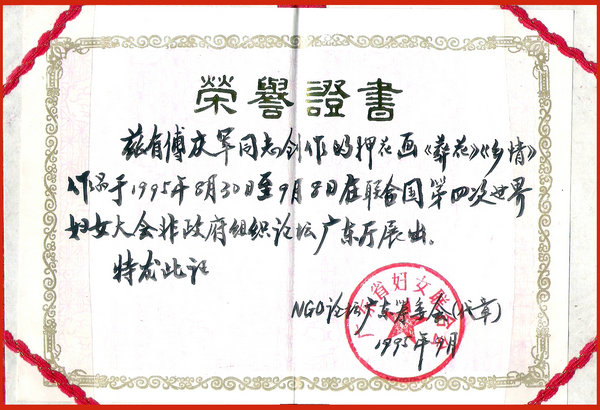 榮譽證書
兹有傅庆军同志创作的押花画《葬花》《乡情》
作品于1995年8月30日至9月8日在联合国第四次世界
妇女大会非政府组织论坛广东厅展出。
特发此证
NGO论坛广东筹委会(代章)
1995年9月
广东省妇女联合会